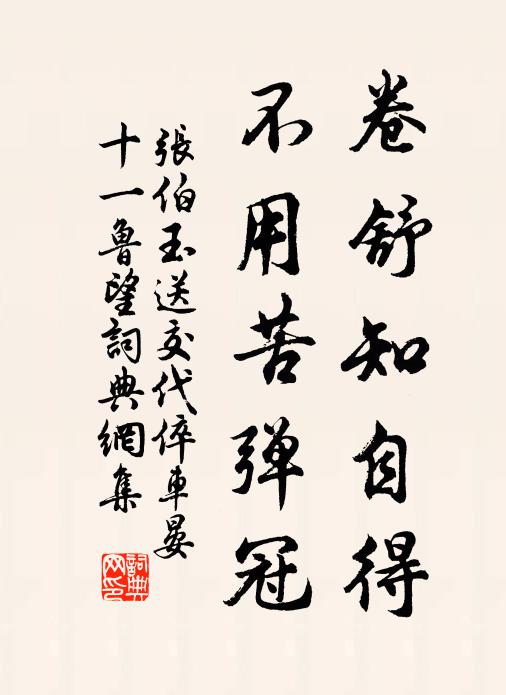 卷舒知自得
不用苦弹冠
張伯玉送交代倅車晏
十一魯望詞典網集
詞典
网印